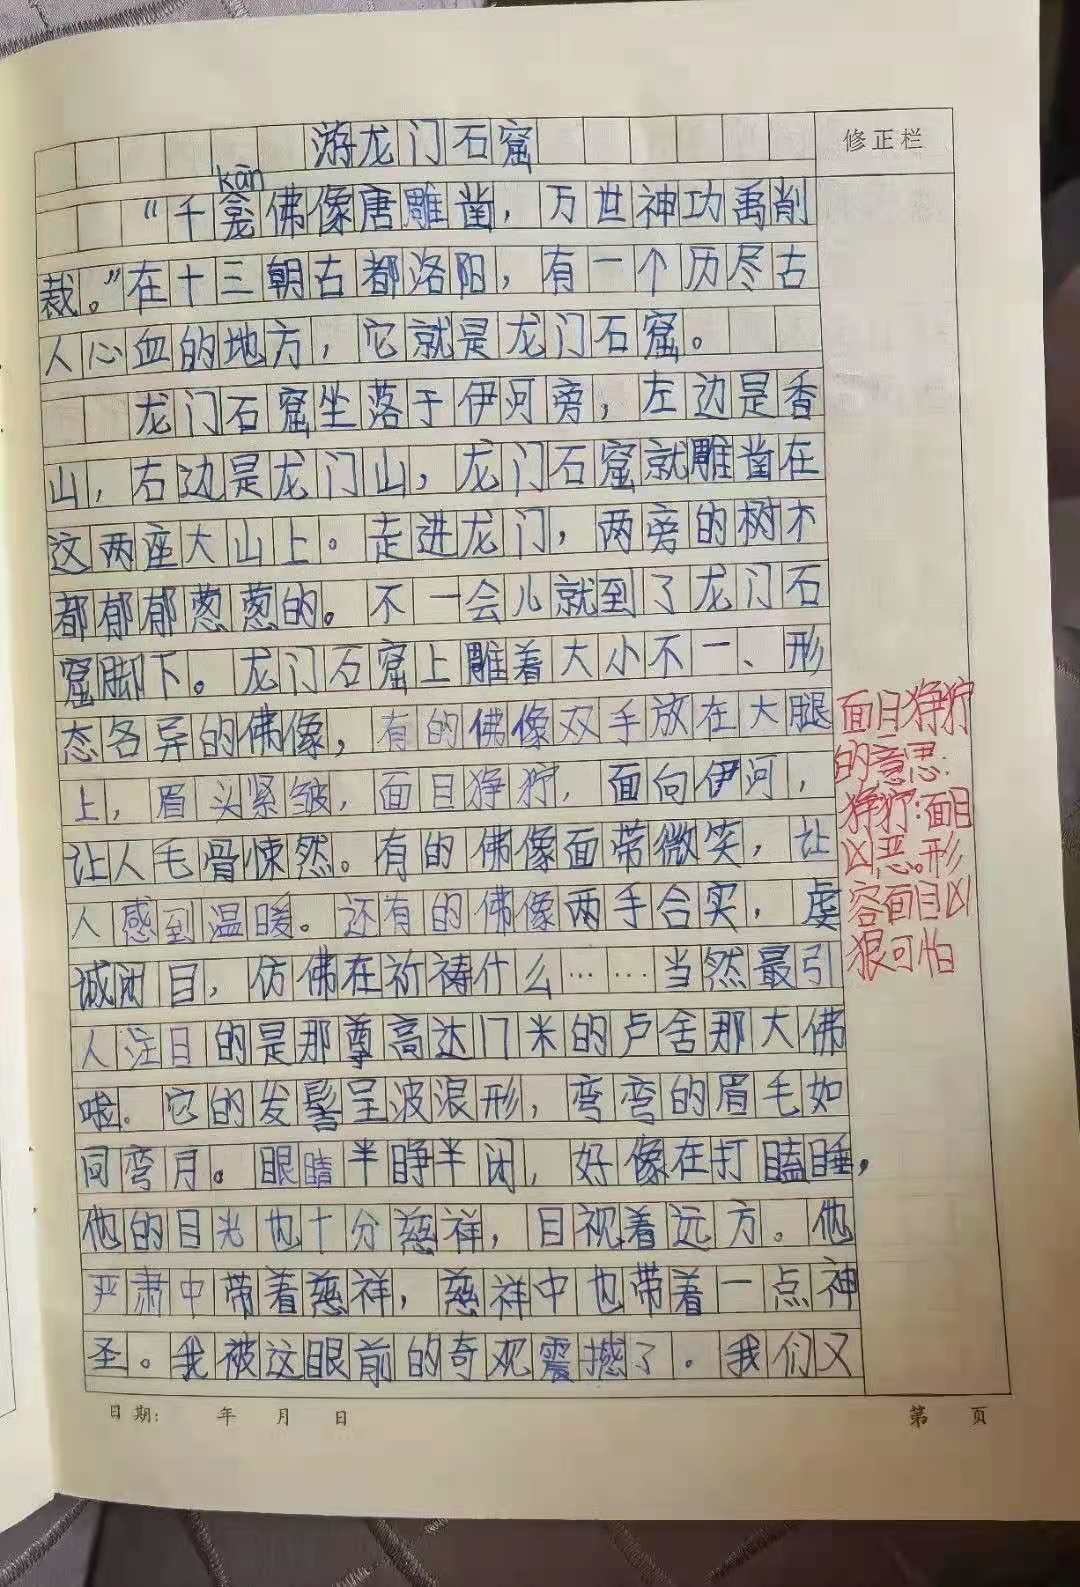 游龙门石窟
修正栏
kān
“千龛佛像唐雕凿，万世神功禹削
裁。”在十三朝古都洛阳，有一个历尽古
人心血的地方，它就是龙门石窟。
龙门石窟坐落于伊河旁，左边是香
山，右边是龙门山，龙门石窟就雕凿在
这两座大山上。走进龙门，两旁的树木
都郁郁葱葱的。不一会儿就到了龙门石
窟脚下。龙门石窟上雕着大小不一、形
态各异的佛像，有的佛像双手放在大腿
上，眉头紧皱，面目狰狞，面向伊河，
让人毛骨悚然。有的佛像面带微笑，让
人感到温暖。还有的佛像两手合实，虔
诚闭目，仿佛在祈祷什么……当然最引
人注目的是那尊高达17米的卢舍那大佛
啦。它的发髻呈波浪形，弯弯的眉毛如
同弯月。眼睛半睁半闭，好像在打瞌睡，
他的目光也十分慈祥，目视着远方。他
严肃中带着慈祥，慈祥中也带着一点神
圣。我被这眼前的奇观震撼了。我们又
面目狰狞
的意思：
狰狞：面目
凶恶。形
容面目凶
狠可怕
日期： 年 月 日
第 页